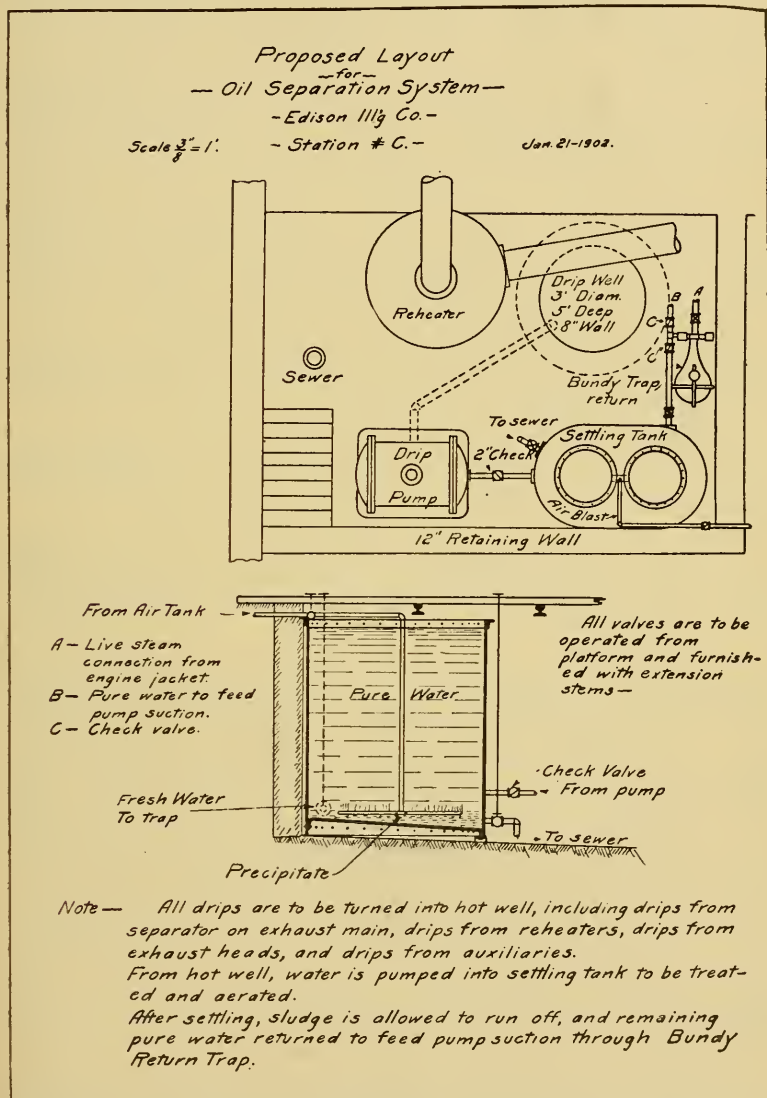 Proposed Layout
—for—
— Oil Separation System —
- Edison Ill'g Co. -
Scale 3/8" = 1'.
- Station # C. -
Jan. 21-1902.
Reheater
Drip Well
3' Diam.
5' Deep
8" Wall
B
A
C
C
Bundy Trap
return
Sewer
To sewer
2" Check
Settling Tank
Drip
Pump
Air Blast
12" Retaining Wall
From Air Tank
A — Live steam
connection from
engine jacket.
B — Pure water to feed
pump suction.
C — Check valve.
Pure Water
All valves are to be
operated from
platform and furnish-
ed with extension
stems —
Check Valve
From pump
Fresh Water
To trap
To sewer
Precipitate
Note — All drips are to be turned into hot well, including drips from
separator on exhaust main, drips from reheaters, drips from
exhaust heads, and drips from auxiliaries.
From hot well, water is pumped into settling tank to be treat-
ed and aerated.
After settling, sludge is allowed to run off, and remaining
pure water returned to feed pump suction through Bundy
Return Trap.